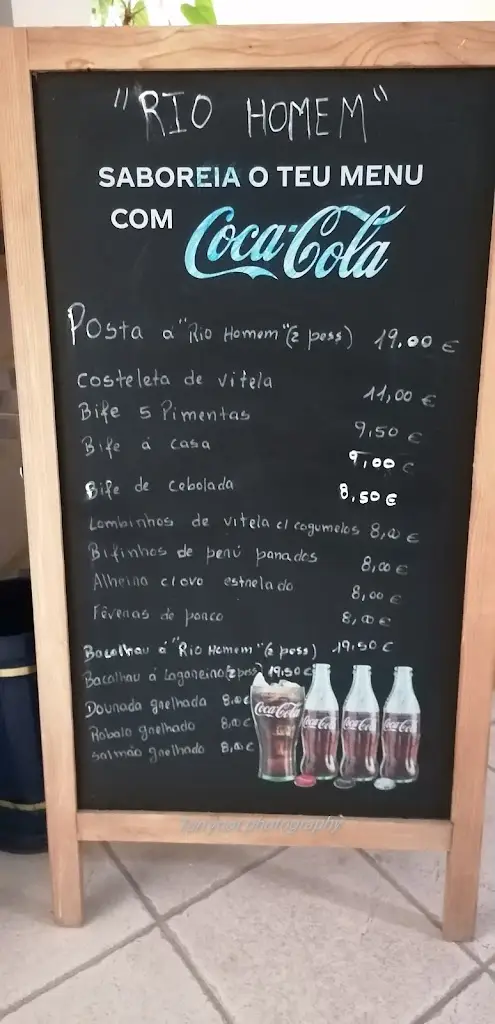 "RIO HOMEM"
SABOREIA O TEU MENU
COM Coca-Cola
Posta á "Rio Homem" (2 pess) 19,00 €
Costeleta de vitela 11,00 €
Bife 5 Pimentas 9,50 €
Bife á casa 9,00 €
Bife de Cebolada 8,50 €
Lombinhos de vitela c/ cogumelos 8,00 €
Bifinhos de perú panados 8,00 €
Alheira c/ovo estrelado 8,00 €
Fêveras de porco 8,00 €
Bacalhau á "Rio Homem" (2 pess) 19,50 €
Bacalhau á Lagareiro (2 pess) 19,50 €
Dourada grelhada 8,00 €
Robalo grelhado 8,00 €
Salmão grelhado 8,00 €
Coca-Cola Coca-Cola Coca-Cola Coca-Cola
photography